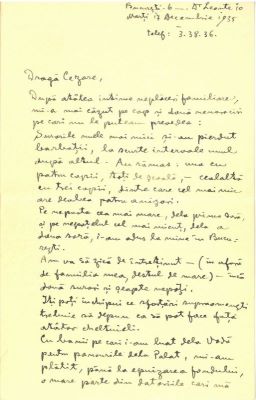 București - 6 - Dr Leonte 10
Marți 17 Decembrie 1935
telef: 3.38.36.
Dragă Cezare,
După atâtea intime neplăceri familiare,
mi-a mai căzut pe cap și două nenorociri
pe cari nu le puteam prevedea:
Surorile mele mai mici și-au pierdut
barbații, la scurte intervale unul
după altul. Au rămas: una cu
patru copii, toți de școală, - cealaltă
cu trei copii, dintre care cel mai mic
are deabea patru anișori.
Pe nepoata cea mai mare, dela prima soră,
și pe nepoțelul cel mai micuț, dela a
doua soră, i-am adus la mine în Bucu-
rești.
Am va să zică de întreținut - (în afară
de familia mea, destul de mare) - încă
două surori și șeapte nepoți.
Iți poți închipui ce sforțări supraomenești
trebuie să depun ca să pot face față
atâtor cheltuieli.
Cu banii pe cari i-am luat dela Vodă
pentru panourile dela Palat, mi-am
plătit, până la epuizarea fondului,
o mare parte din datoriile cari mă